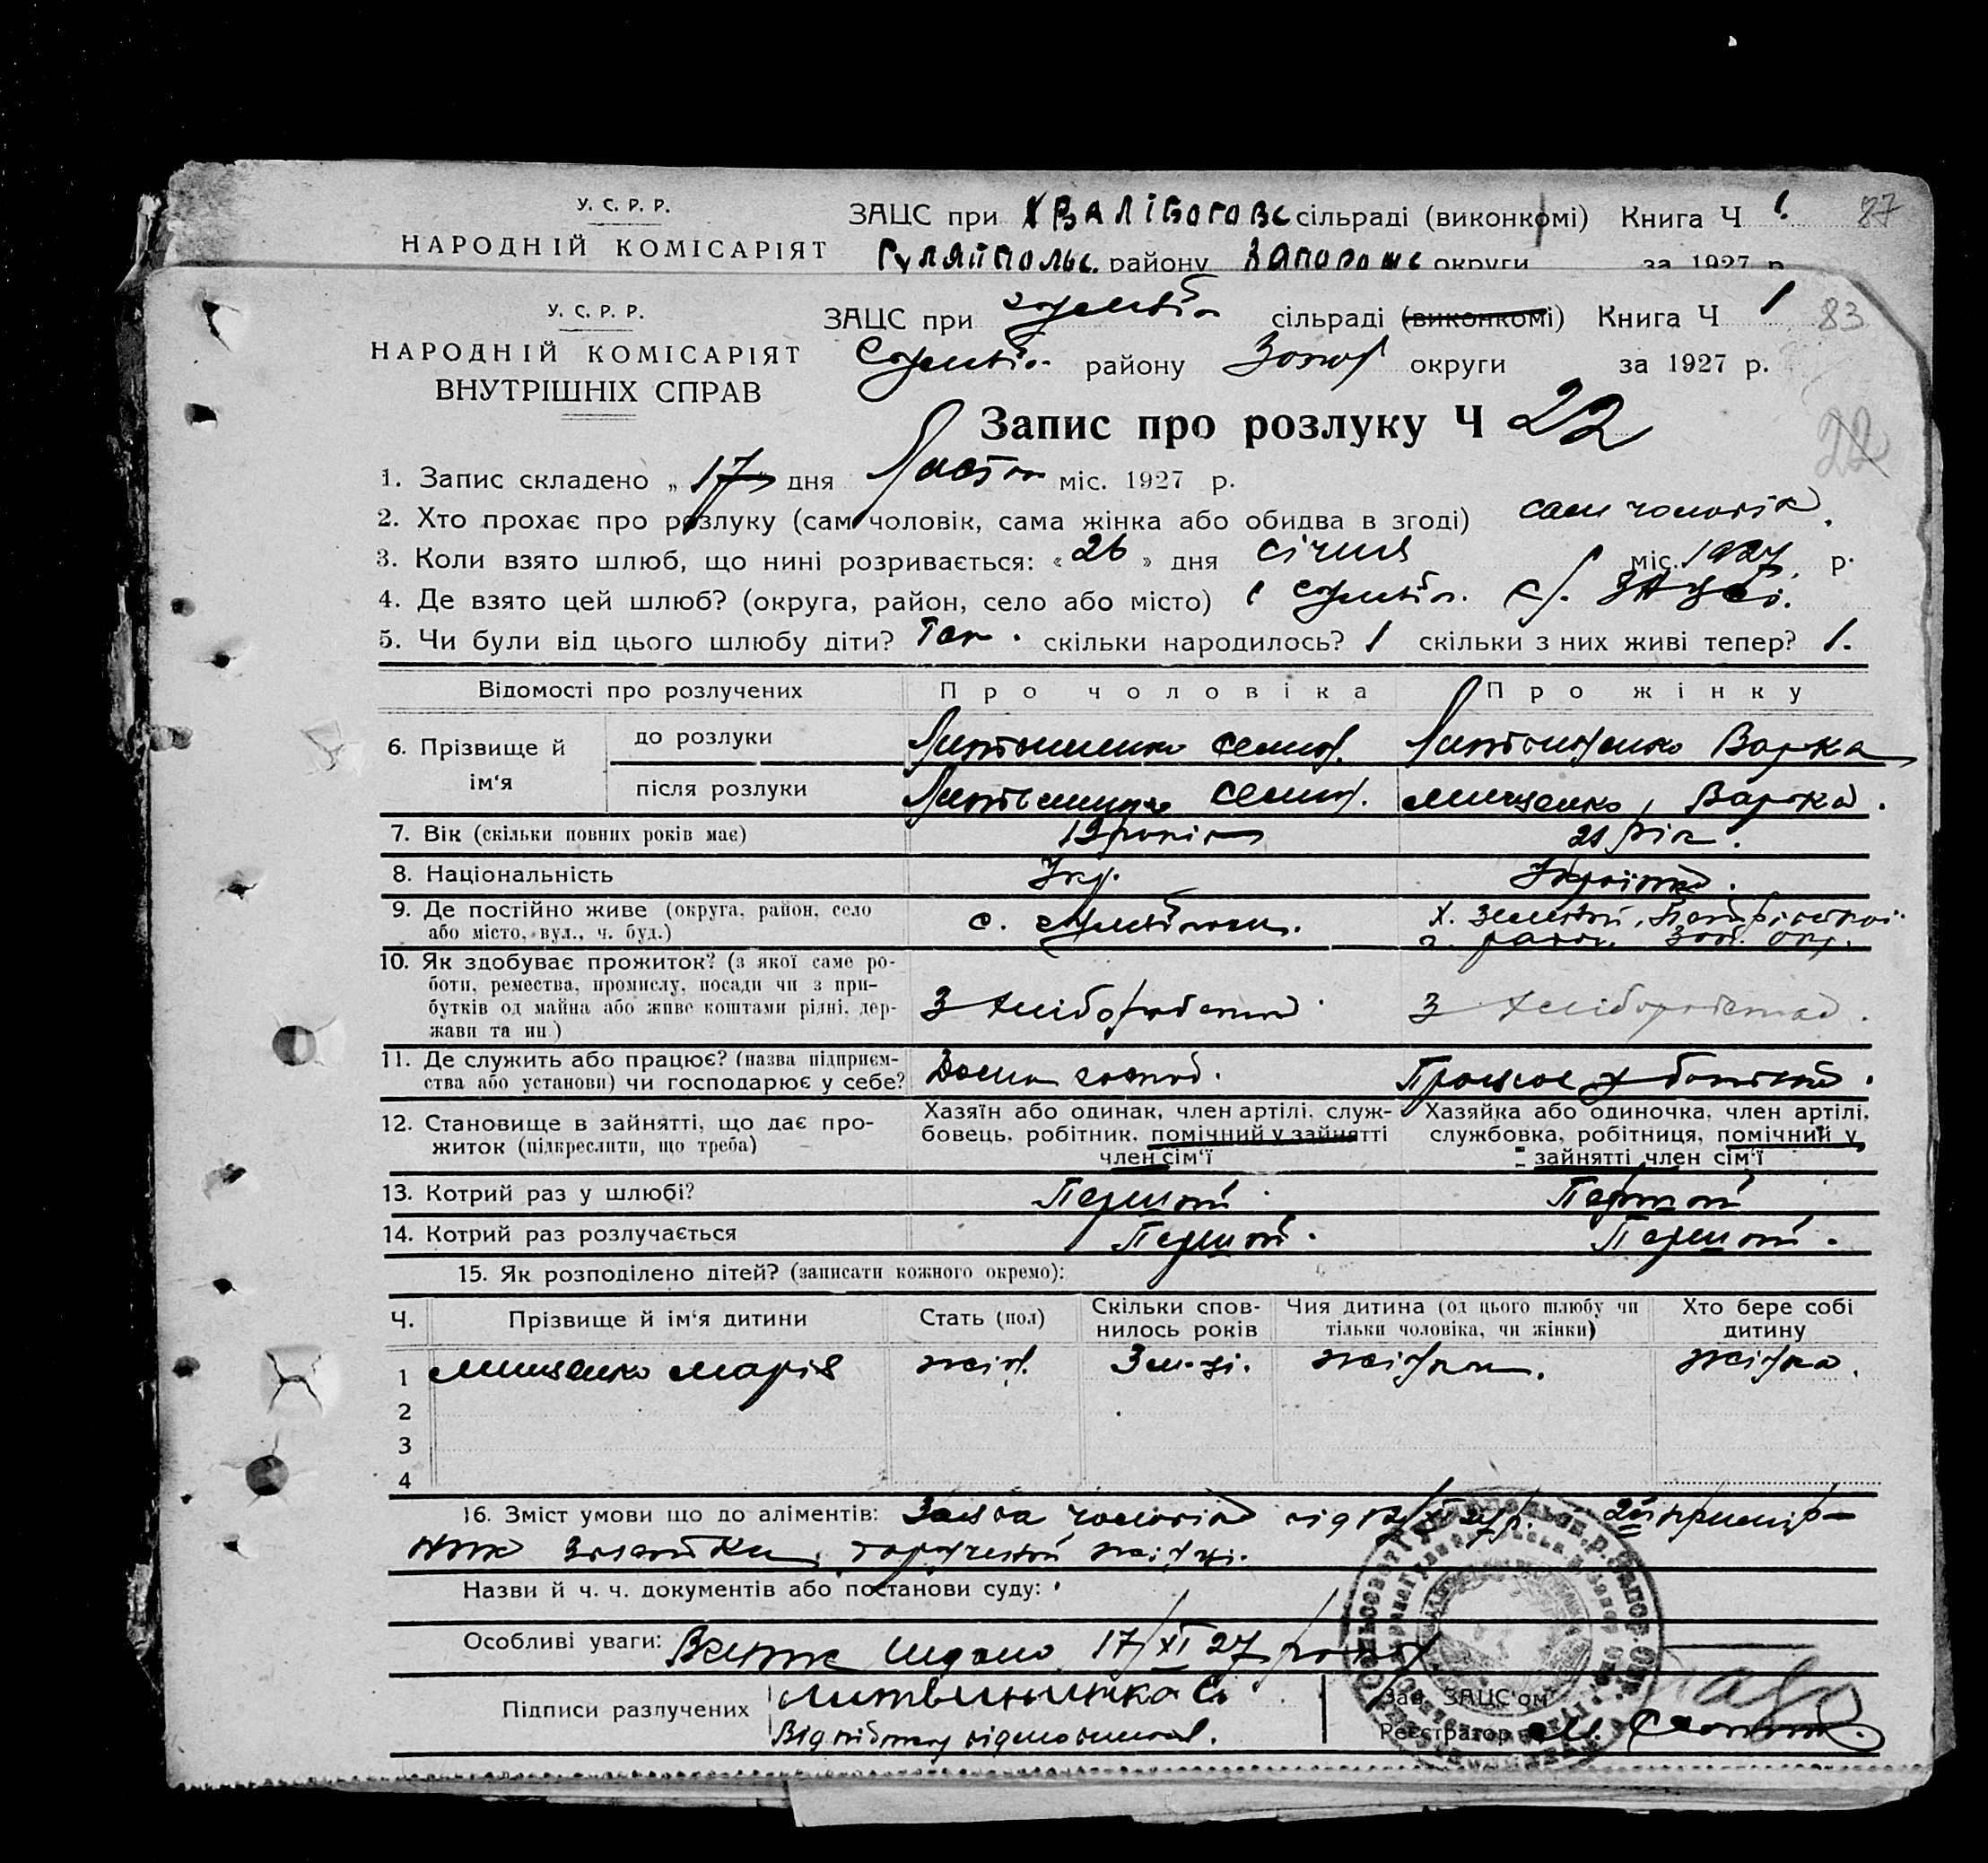 У. С. Р. Р.
НАРОДНІЙ КОМІСАРІЯТ
ЗАЦС при ХВАЛІБОГОВС сільраді (виконкомі) Книга Ч 1. 87
Гуляйпольс. району Запорожс округи за 1927 р.
У. С. Р. Р.
НАРОДНІЙ КОМІСАРІЯТ
ВНУТРІШНІХ СПРАВ
ЗАЦС при сільраді (виконкомі) Книга Ч 1 83
району Запор округи за 1927 р.
Запис про розлуку Ч 22
22
1. Запис складено „17" дня Листоп міс. 1927 р.
2. Хто прохає про розлуку (сам чоловік, сама жінка або обидва в згоді) сам чоловік.
3. Коли взято шлюб, що нині розривається: «26» дня січня міс. 1927 р.
4. Де взято цей шлюб? (округа, район, село або місто)
5. Чи були від цього шлюбу діти? Так. скільки народилось? 1 скільки з них живі тепер? 1.
Відомості про розлучених Про чоловіка Про жінку
6. Прізвище й ім'я
до розлуки Литвиненко Семен. Литвиненко Варка
після розлуки Литвиненко Семен. Мищенко, Варка.
7. Вік (скільки повних років має) 19 років 21 рік.
8. Національність Укр. Українка.
9. Де постійно живе (округа, район, село
або місто, вул., ч. буд.) с. х.
район. Зап. окр.
10. Як здобуває прожиток? (з якої саме ро-
боти, ремества, промислу, посади чи з при-
бутків од майна або живе коштами рідні, дер-
жави та ин.)
З хліборобства З хліборобства.
11. Де служить або працює? (назва підприєм-
ства або установи) чи господарює у себе?
Дома господ. Працює у батьків.
12. Становище в зайнятті, що дає про-
житок (підкреслити, що треба)
Хазяїн або одинак, член артілі, служ-
бовець, робітник, помічний у зайнятті
член сім'ї
Хазяйка або одиночка, член артілі,
службовка, робітниця, помічний у
зайнятті член сім'ї
13. Котрий раз у шлюбі? Перший. Перший
14. Котрий раз розлучається Перший. Перший.
15. Як розподілено дітей? (записати кожного окремо):
Ч. Прізвище й ім'я дитини Стать (пол) Скільки спов-
нилось років Чия дитина (од цього шлюбу чи
тільки чоловіка, чи жінки) Хто бере собі
дитину
1 Мищенко Марія жін. 3 м-ці. жінки. жінка.
2
3
4
16. Зміст умови що до аліментів: Заява чоловіка від
Назви й ч. ч. документів або постанови суду:
Особливі уваги: Витяг видано 17/XI 27 року
Підписи розлучених Литвиненко С.
Зав. ЗАЦС'ом
Реєстратор